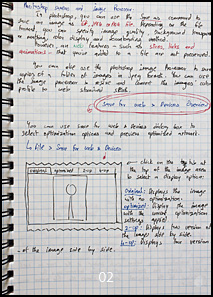 Photoshop saving and Image Processor
In photoshop, you can use the Save as command to
save an image as GIF, JPEG or PNG file. Depending on the file
format, you can specify image quality, background transparency
or matting, color display and downloading method.
However, any web features - such as slices, links and
animations - that you've added to a file are not preserved.
You can also use the photoshop Image Processor to save
copies of a folder of images in jpeg format. You can use
the image processor to resize and convert the images color
profile to web standard sRGB.
Save for web & Devices Overview
You can use save for web & Devices dialog box to
select optimization options and preview optimized artwork.
File > Save for web & Devices
original optimized 2-up 4-up
click on the tab at
the top of the image area
to select a display option:
Original: Displays the image
with no optimization.
optimized: Displays the image
with the current optimization
settings applied.
2-up: Displays two version of
the image side by side.
4-up: Displays four versions
of the image side by side.
02